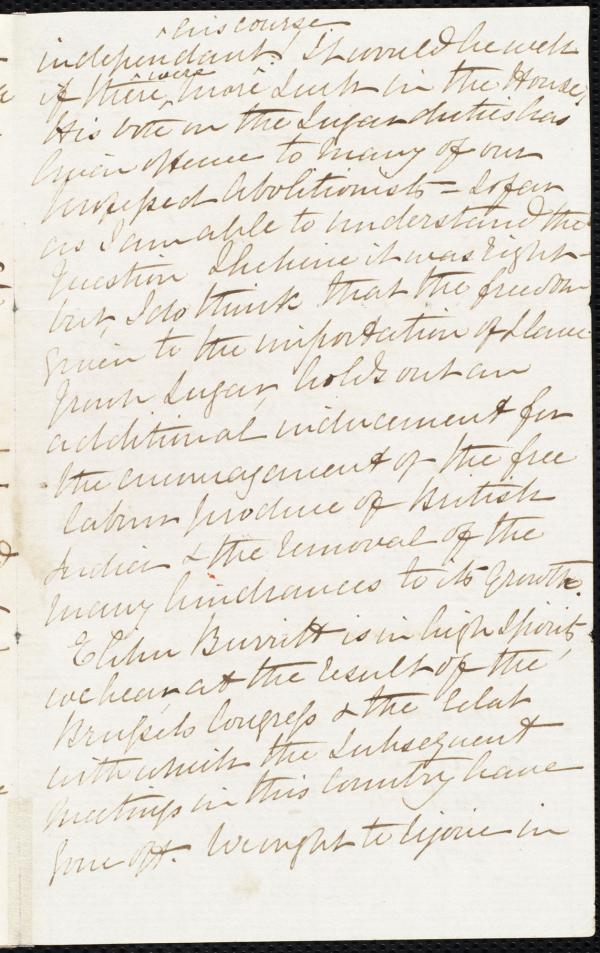 in his course
independant. It would be well
if there were more such in the House,
His vote on the Sugar duties has
given offence to many of our
professed Abolitionists = So far
as I am able to understand the
question I believe it was right -
but, I do think that the freedom
given to the importation of Slave
grown Sugar, holds out an
additional inducement for
the encouragement of the free
labour produce of British
India & the removal of the
many hindrances to its growth.
Elihu Burritt is in high spirits,
we hear, at the result of the
Brussels Congress & the eclat
with which the subsequent
meetings in this Country have
gone off. We ought to rejoice in